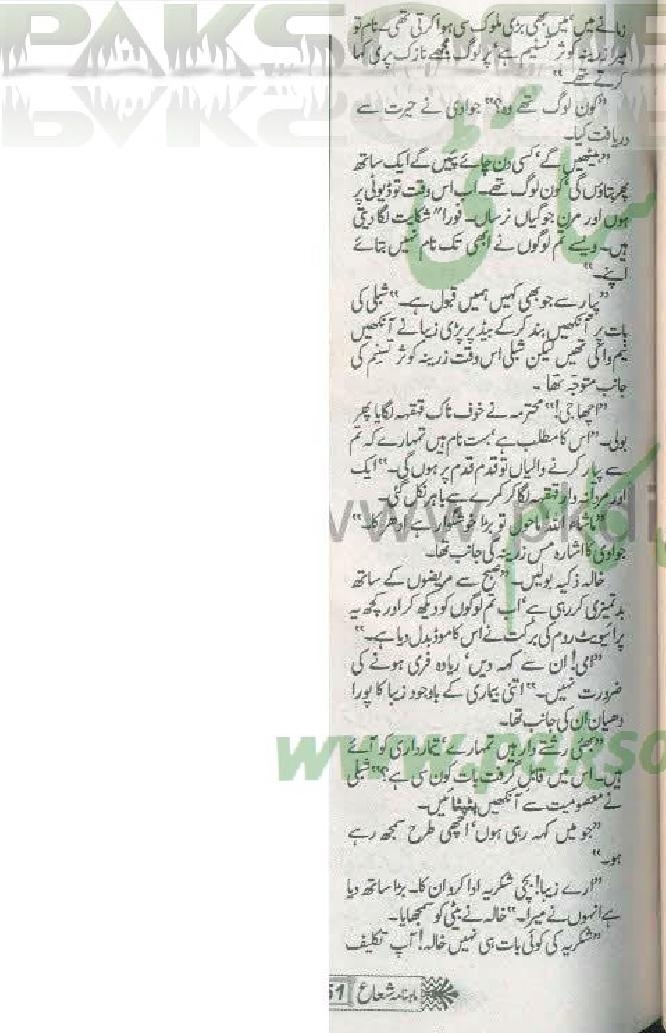 PAKSO
زمانے میں میں بھی بڑی ملوک سی ہوا کرتی تھی۔ نام تو
میرا زرینہ کوثر تسنیم ہے پر لوگ مجھے نازک پری کہا
کرتے تھے۔"
"کون لوگ تھے وہ؟" جوادی نے حیرت سے
دریافت کیا۔
"بیٹھیں گے، کسی دن چائے پئیں گے ایک ساتھ
پھر بتاؤں گی، کون لوگ تھے۔ اب اس وقت تو ڈیوٹی پر
ہوں اور مرن جوگیاں نرساں۔ فورا" شکایت لگا دیتی
ہیں۔ ویسے تم لوگوں نے ابھی تک نام نہیں بتائے
اپنے۔"
"پیار سے جو بھی کہیں ہمیں قبول ہے۔" شبلی کی
بات پر آنکھیں بند کر کے بیڈ پر پڑی زیبا نے آنکھیں
نیم وا کی تھیں لیکن شبلی اس وقت زرینہ کوثر تسنیم کی
جانب متوجہ تھا۔
"اچھا جی!" محترمہ نے خوف ناک قہقہہ لگایا پھر
بولی۔ "اس کا مطلب ہے، بہت نام ہیں تمہارے کہ تم
سے پیار کرنے والیاں تو قدم قدم پر ہوں گی۔" ایک
اور مردانہ وار قہقہہ لگا کر کمرے سے باہر نکل گئی۔
"ماشاء اللہ ماحول تو بڑا خوشگوار ہے ادھر کا۔"
جوادی کا اشارہ مس زرینہ کی جانب تھا۔
خالہ ذکیہ بولیں۔ "صبح سے مریضوں کے ساتھ
بدتمیزی کر رہی ہے، اب تم لوگوں کو دیکھ کر اور کچھ یہ
پرائیویٹ روم کی برکت نے اس کا موڈ بدل دیا ہے۔"
"امی! ان سے کہہ دیں، زیادہ فری ہونے کی
ضرورت نہیں۔" اتنی بیماری کے باوجود زیبا کا پورا
دھیان ان کی جانب تھا۔
"بھئی رشتے دار ہیں تمہارے، تیمارداری کو آئے
ہیں۔ اس میں قابل گرفت بات کون سی ہے؟" شبلی
نے معصومیت سے آنکھیں پٹپٹائیں۔
"جو میں کہہ رہی ہوں، اچھی طرح سمجھ رہے
ہو۔"
"ارے زیبا! بچی شکریہ ادا کرو ان کا۔ بڑا ساتھ دیا
ہے انہوں نے میرا۔" خالہ نے بیٹی کو سمجھایا۔
"شکریہ کی کوئی بات ہی نہیں خالہ! آپ تکلیف
ماہنامہ شعاع 51
www.pkdi
www.pakso